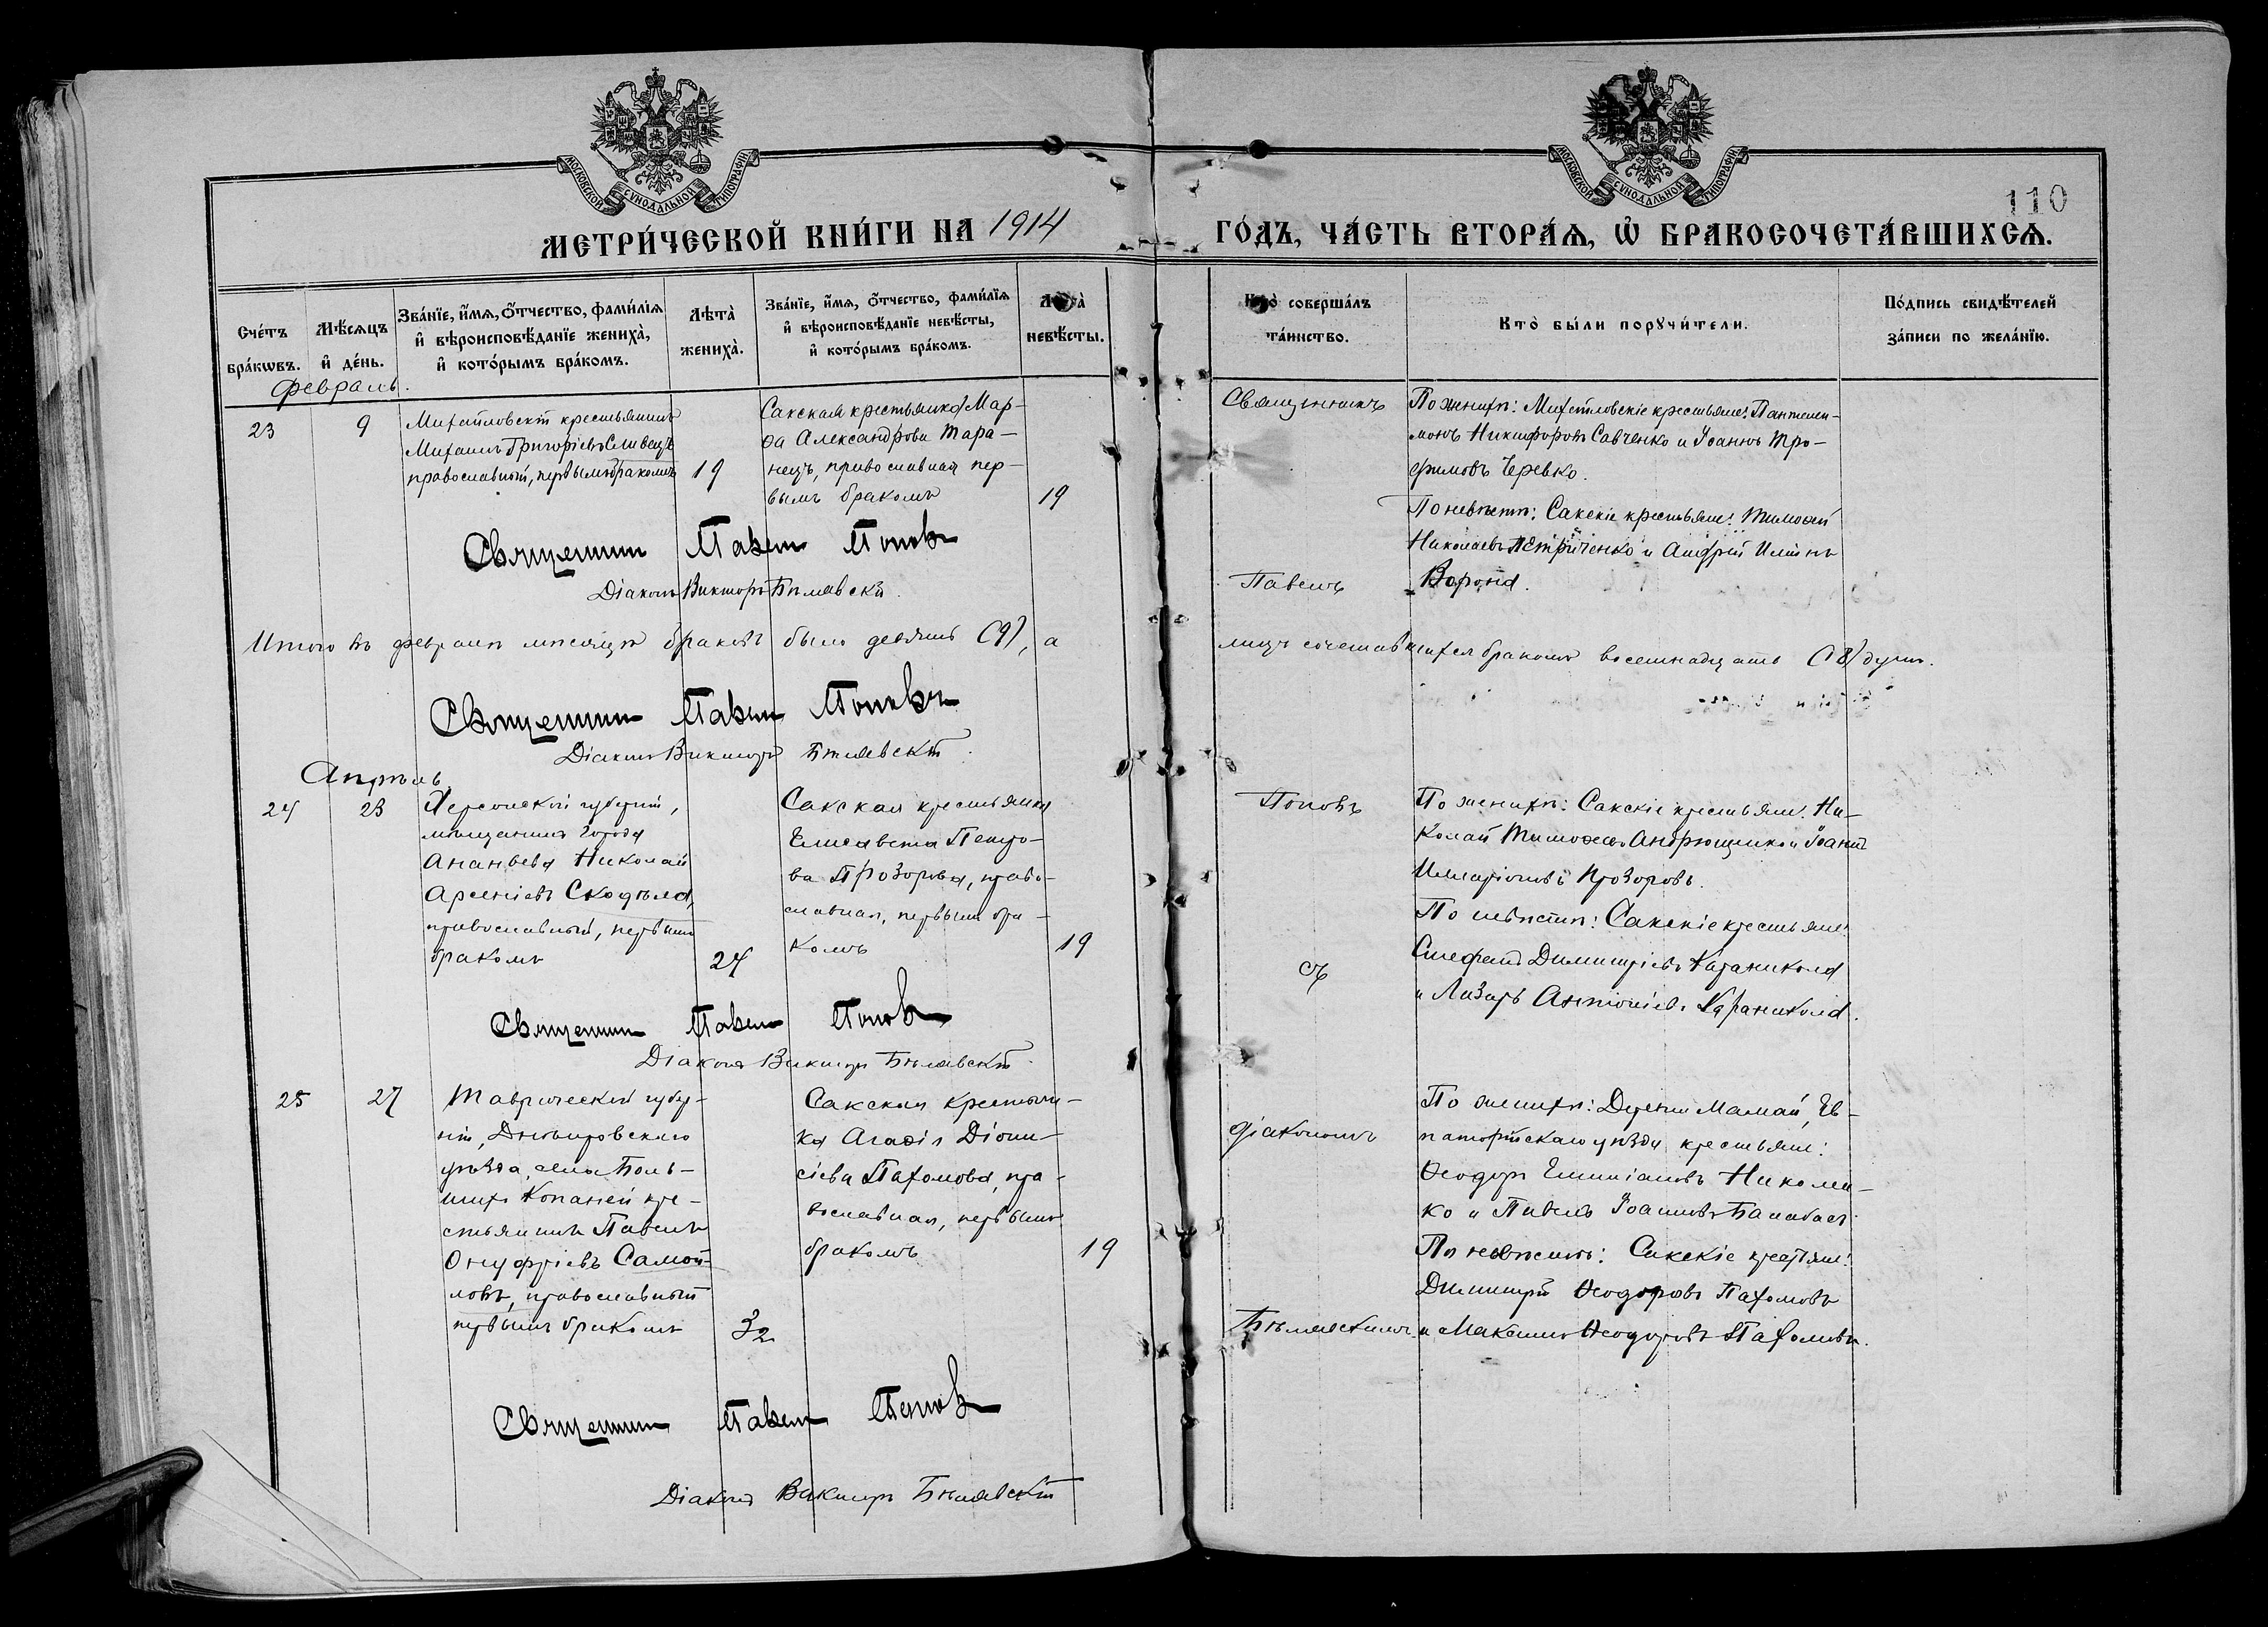 МОСКОВСКОЙ СѴНОДАЛЬНОЙ ТИПОГРАФІИ
МОСКОВСКОЙ СѴНОДАЛЬНОЙ ТИПОГРАФІИ
110
МЕТРИ́ЧЕСКОЙ КНИ́ГИ НА 1914
ГО́ДЪ, ЧА́СТЬ ВТОРА́Ѧ, Ѽ БРАКОСОЧЕТА́ВШИХСѦ.
Сче́тъ бра́кѡвъ.
Мѣ́сѧцъ и҆ де́нь.
Зва́нїе, и҆́мѧ, ѻ҆́тчество, фами́лїѧ и҆ вѣроисповѣ́данїе жениха̀, и҆ кото́рымъ бра́комъ.
Лѣта̀ жениха̀.
Зва́нїе, и҆́мѧ, ѻ҆́тчество, фами́лїѧ и҆ вѣроисповѣ́данїе невѣ́сты, и҆ кото́рымъ бра́комъ.
Лѣта̀ невѣ́сты.
Кто̀ соверша́лъ та́инство.
Кто̀ бы́ли порꙋчи́тели.
По́дпись свидѣ́телей за́писи по жела́нїю.
Февраль.
23
9
Михайловскій крестьянинъ
Михаилъ Григоріевъ Сливецъ
православный, первымъ бракомъ
19
Сакская крестьянка Мар-
ѳа Александрова Тара-
нецъ, православная пер-
вымъ бракомъ
19
Священникъ
Павелъ
По женихѣ: Михайловскіе крестьяне: Пантелеи-
монъ Никифоровъ Савченко и Іоаннъ Тро-
фимовъ Черевко.
По невѣстѣ: Сакскіе крестьяне: Тимоѳей
Николаевъ Петриченко и Андрей Иліинъ
Ворона.
Священникъ Павелъ Поповъ
Діаконъ Викторъ Бѣлявскій.
Итого въ февралѣ мѣсяцѣ браковъ было девять (9), а
лицъ сочетавшихся бракомъ восемнадцать (18) душъ.
Священникъ Павелъ Поповъ
Діаконъ Викторъ Бѣлявскій.
Апрѣль
24
23
Херсонской губерніи,
мѣщанинъ города
Ананьева Николай
Арсеніевъ Скодѣла,
православный, первымъ
бракомъ
24
Сакская крестьянка
Елисавета Петро-
ва Прозорова, право-
славная, первымъ бра-
комъ
19
Поповъ
съ
По женихѣ: Сакскіе крестьяне: Ни-
колай Тимоѳеевъ Андрющенко и Іоаннъ
Илларіоновъ Прозоровъ.
По невѣстѣ: Сакскіе крестьяне:
Стефанъ Димитріевъ Караникола
и Лазарь Антоніевъ Караникола.
Священникъ Павелъ Поповъ
Діаконъ Викторъ Бѣлявскій.
25
27
Таврической губер-
ніи, Днѣпровскаго
уѣзда, села Боль-
шихъ Копаней кре-
стьянинъ Павелъ
Онуфріевъ Самой-
ловъ, православный
первымъ бракомъ
32
Сакская крестьян-
ка Агаѳія Діони-
сіева Пахомова, пра-
вославная, первымъ
бракомъ
19
діакономъ
Бѣлявскимъ
По женихѣ: Деревни Мамай, Ев-
паторійскаго уѣзда крестьяне:
Ѳеодоръ Емиліановъ Николен-
ко и Павелъ Іоанновъ
По невѣстѣ: Сакскіе крестьяне:
Димитрій Ѳеодоровъ Пахомовъ
и Максимъ Ѳеодоровъ Пахомовъ.
Священникъ Павелъ Поповъ
Діаконъ Викторъ Бѣлявскій